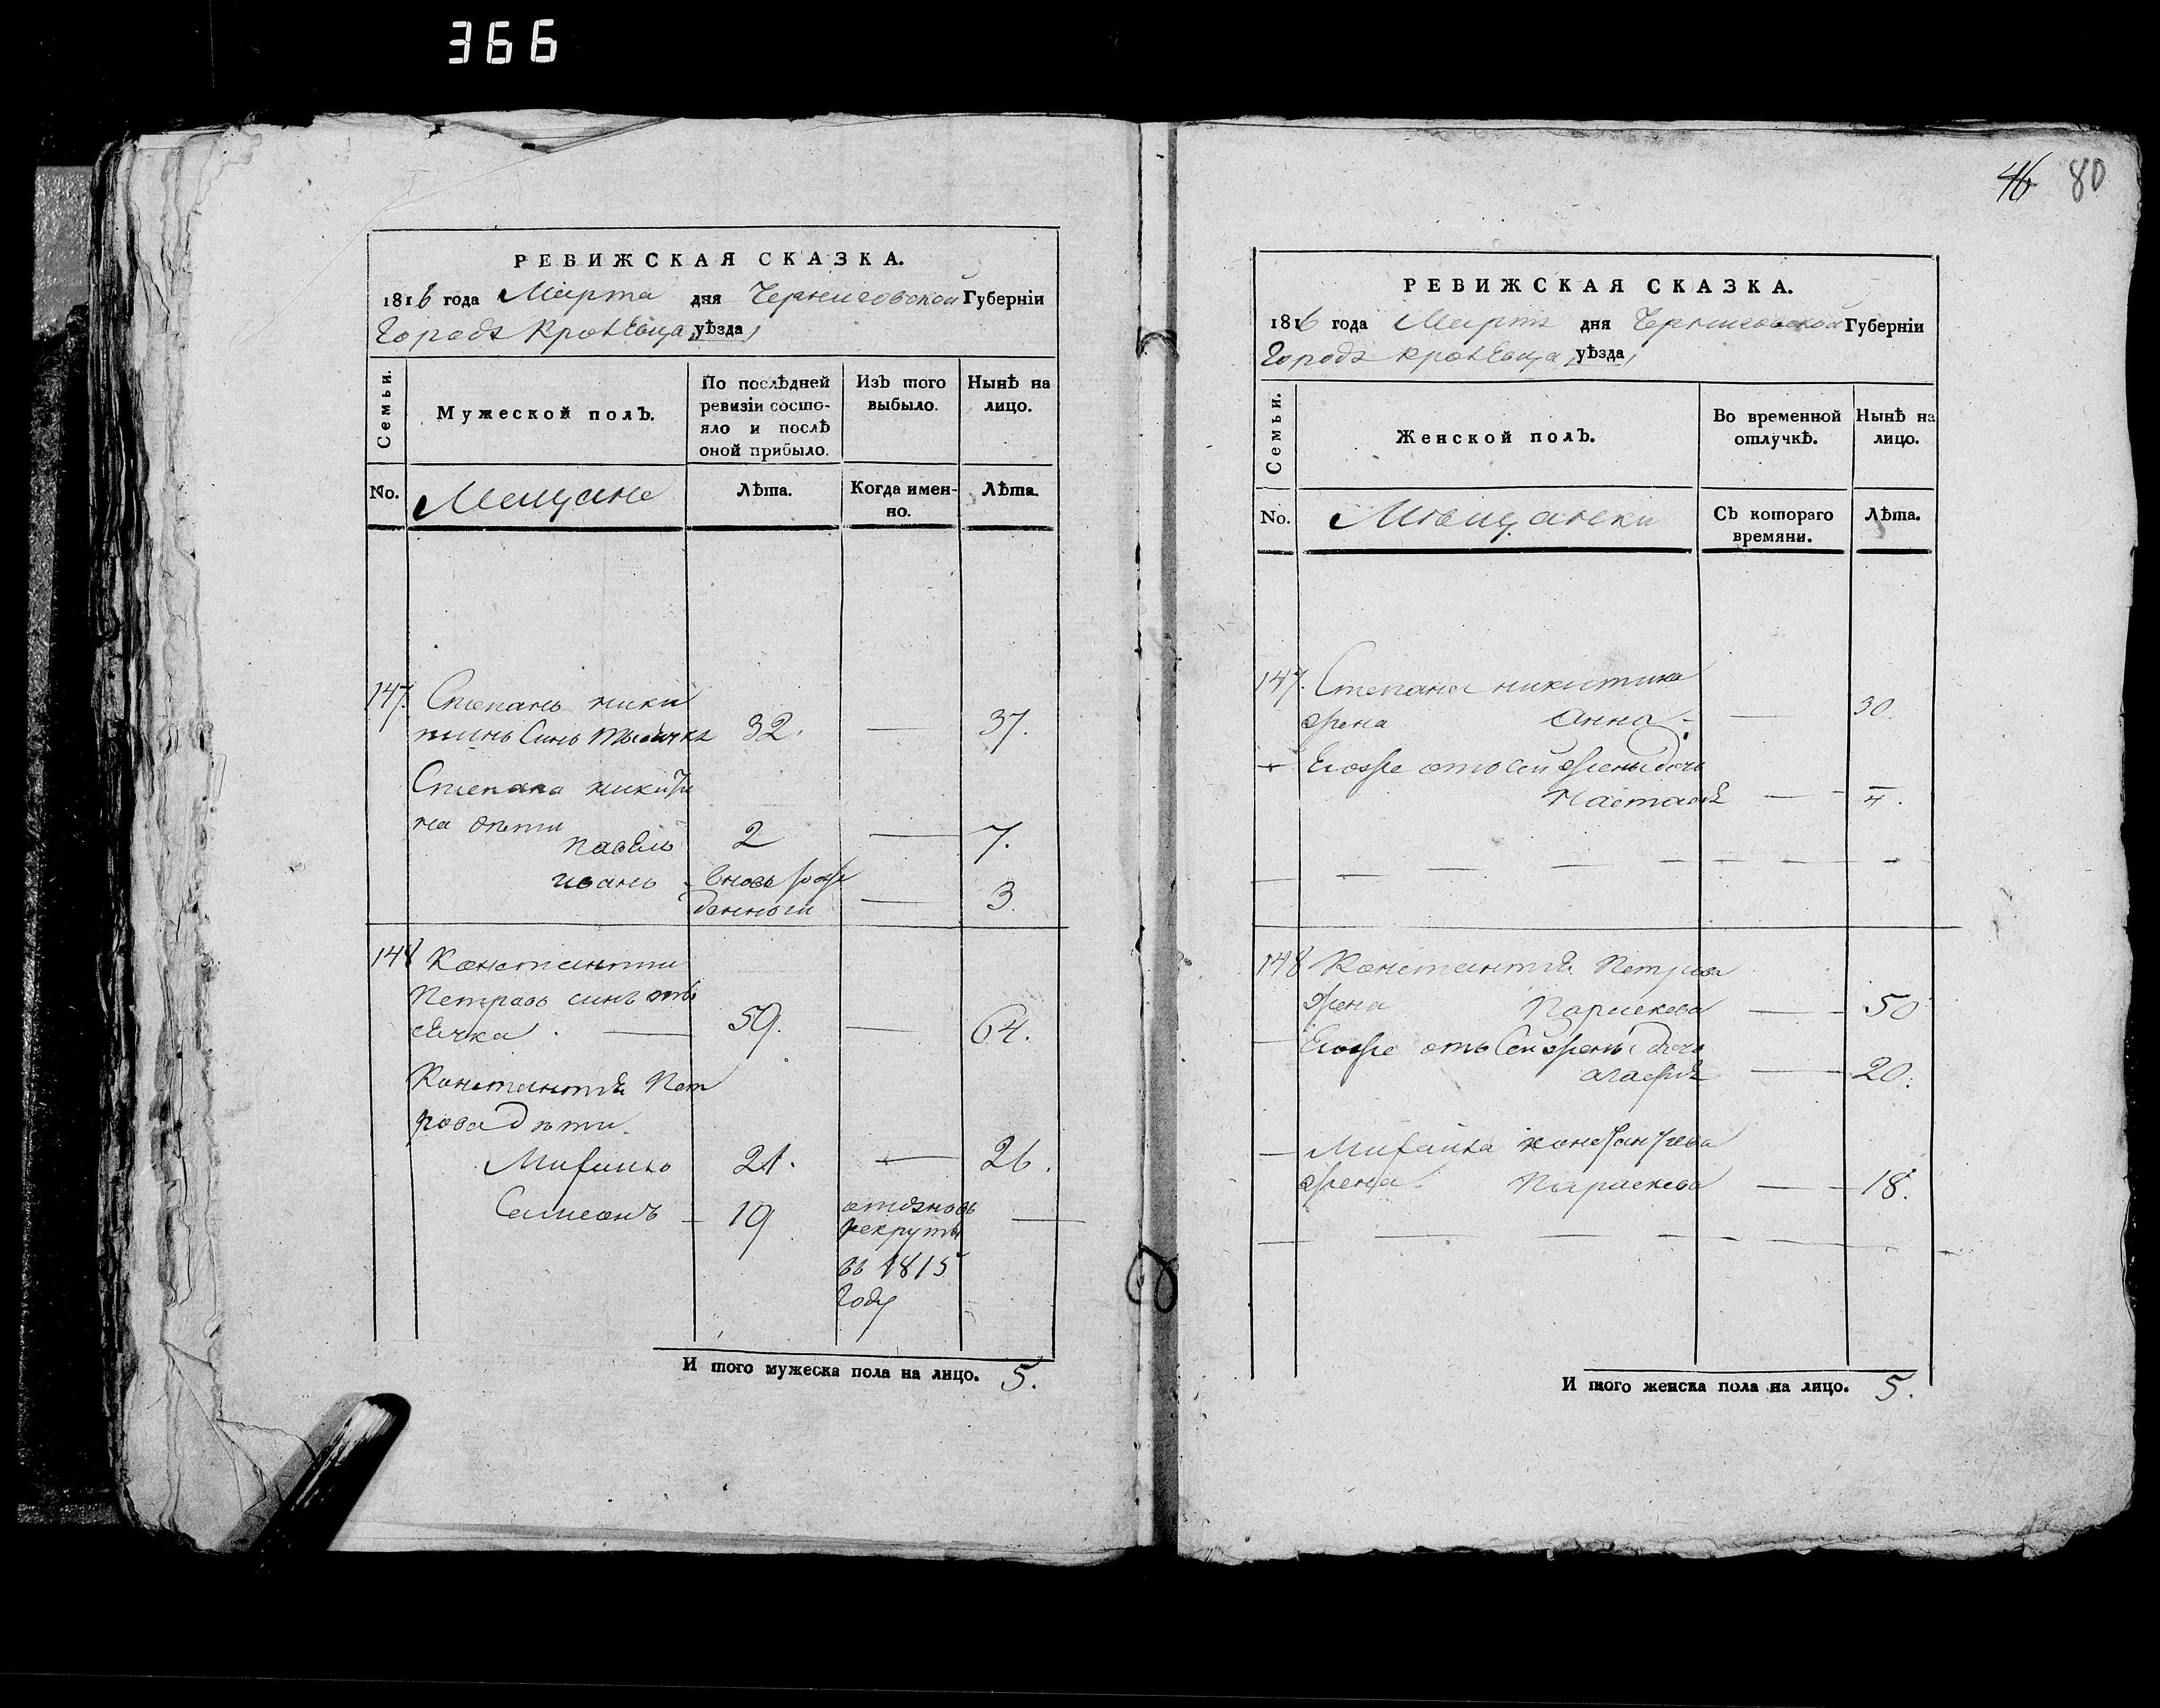 366
РЕВИЖСКАЯ СКАЗКА.
1816 года Марта дня Черниговской Губерніи
Города Кролевца уѣзда
Семьи.
Мужеской полъ.
По послѣдней ревизіи состояло и послѣ оной прибыло.
Изъ того выбыло.
Нынѣ на лицо.
No.
Мещане
Лѣта.
Когда именно.
Лѣта.
147. Степанъ Ники
тинъ Синъ 32. — 37.
Степана Никити
на дѣти
Павелъ 2 — 7.
Иванъ вновь рож
денного — 3.
148 Константи
Петровъ синъ
сѣчка — 59. — 64.
Константiя Пет
рова Дѣти.
Михаило 21. — 26.
Самсонъ — 19 отданъ въ —
рекруты
въ 1815
Году
И того мужеска пола на лицо. 5.
46 80
РЕВИЖСКАЯ СКАЗКА.
1816 года Марта дня Черниговской Губерніи
Города Кролевца уѣзда
Семьи.
Женской полъ.
Во временной отлучкѣ.
Нынѣ на лицо.
No.
Мѣщанки
Съ котораго времяни.
Лѣта.
147. Степана Никитина
жена Анна — 30.
Егоже отъ сей жены дочь
Настасiя — 4.
148 Константiя Петрова
жена Параскева — 50
Егоже отъ сей жены дочь
Агафiя — 20.
Михайла Константiева
жена Параскева — 18.
И того женска пола на лицо. 5.